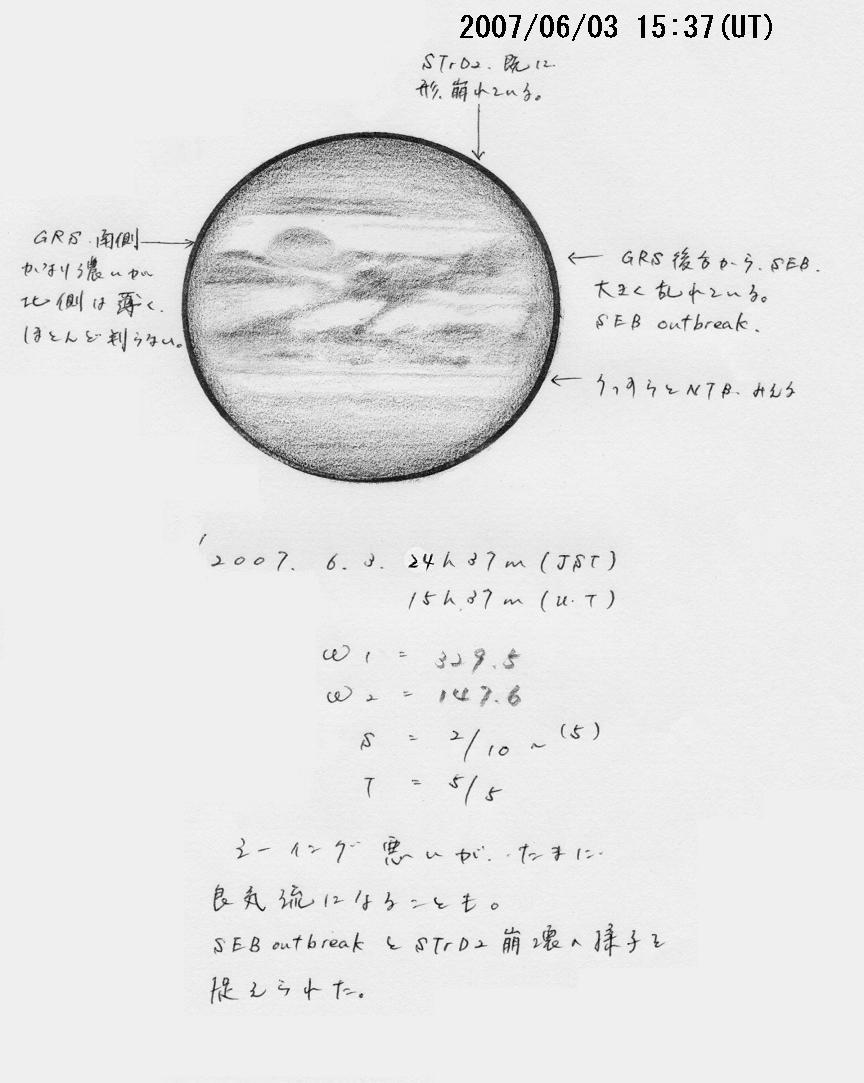 2007/06/03 15:37(UT)
STrD2. 既に
形、崩れている。
GRS. 南側
かなり濃いが
北側は薄く、
ほとんど判らない。
GRS後方から、SEB.
大きく乱れている。
SEB outbreak.
うっすらとNTB. みえる
'2007. 6. 3. 24h 37m (JST)
15h 37m (U.T)
ω1 = 329.5
ω2 = 147.6
S = 2/10 ~ (5)
T = 5/5
シーイング悪いが、たまに
良気流になることも。
SEB outbreakとSTrD2崩壊の様子を
捉えられた。